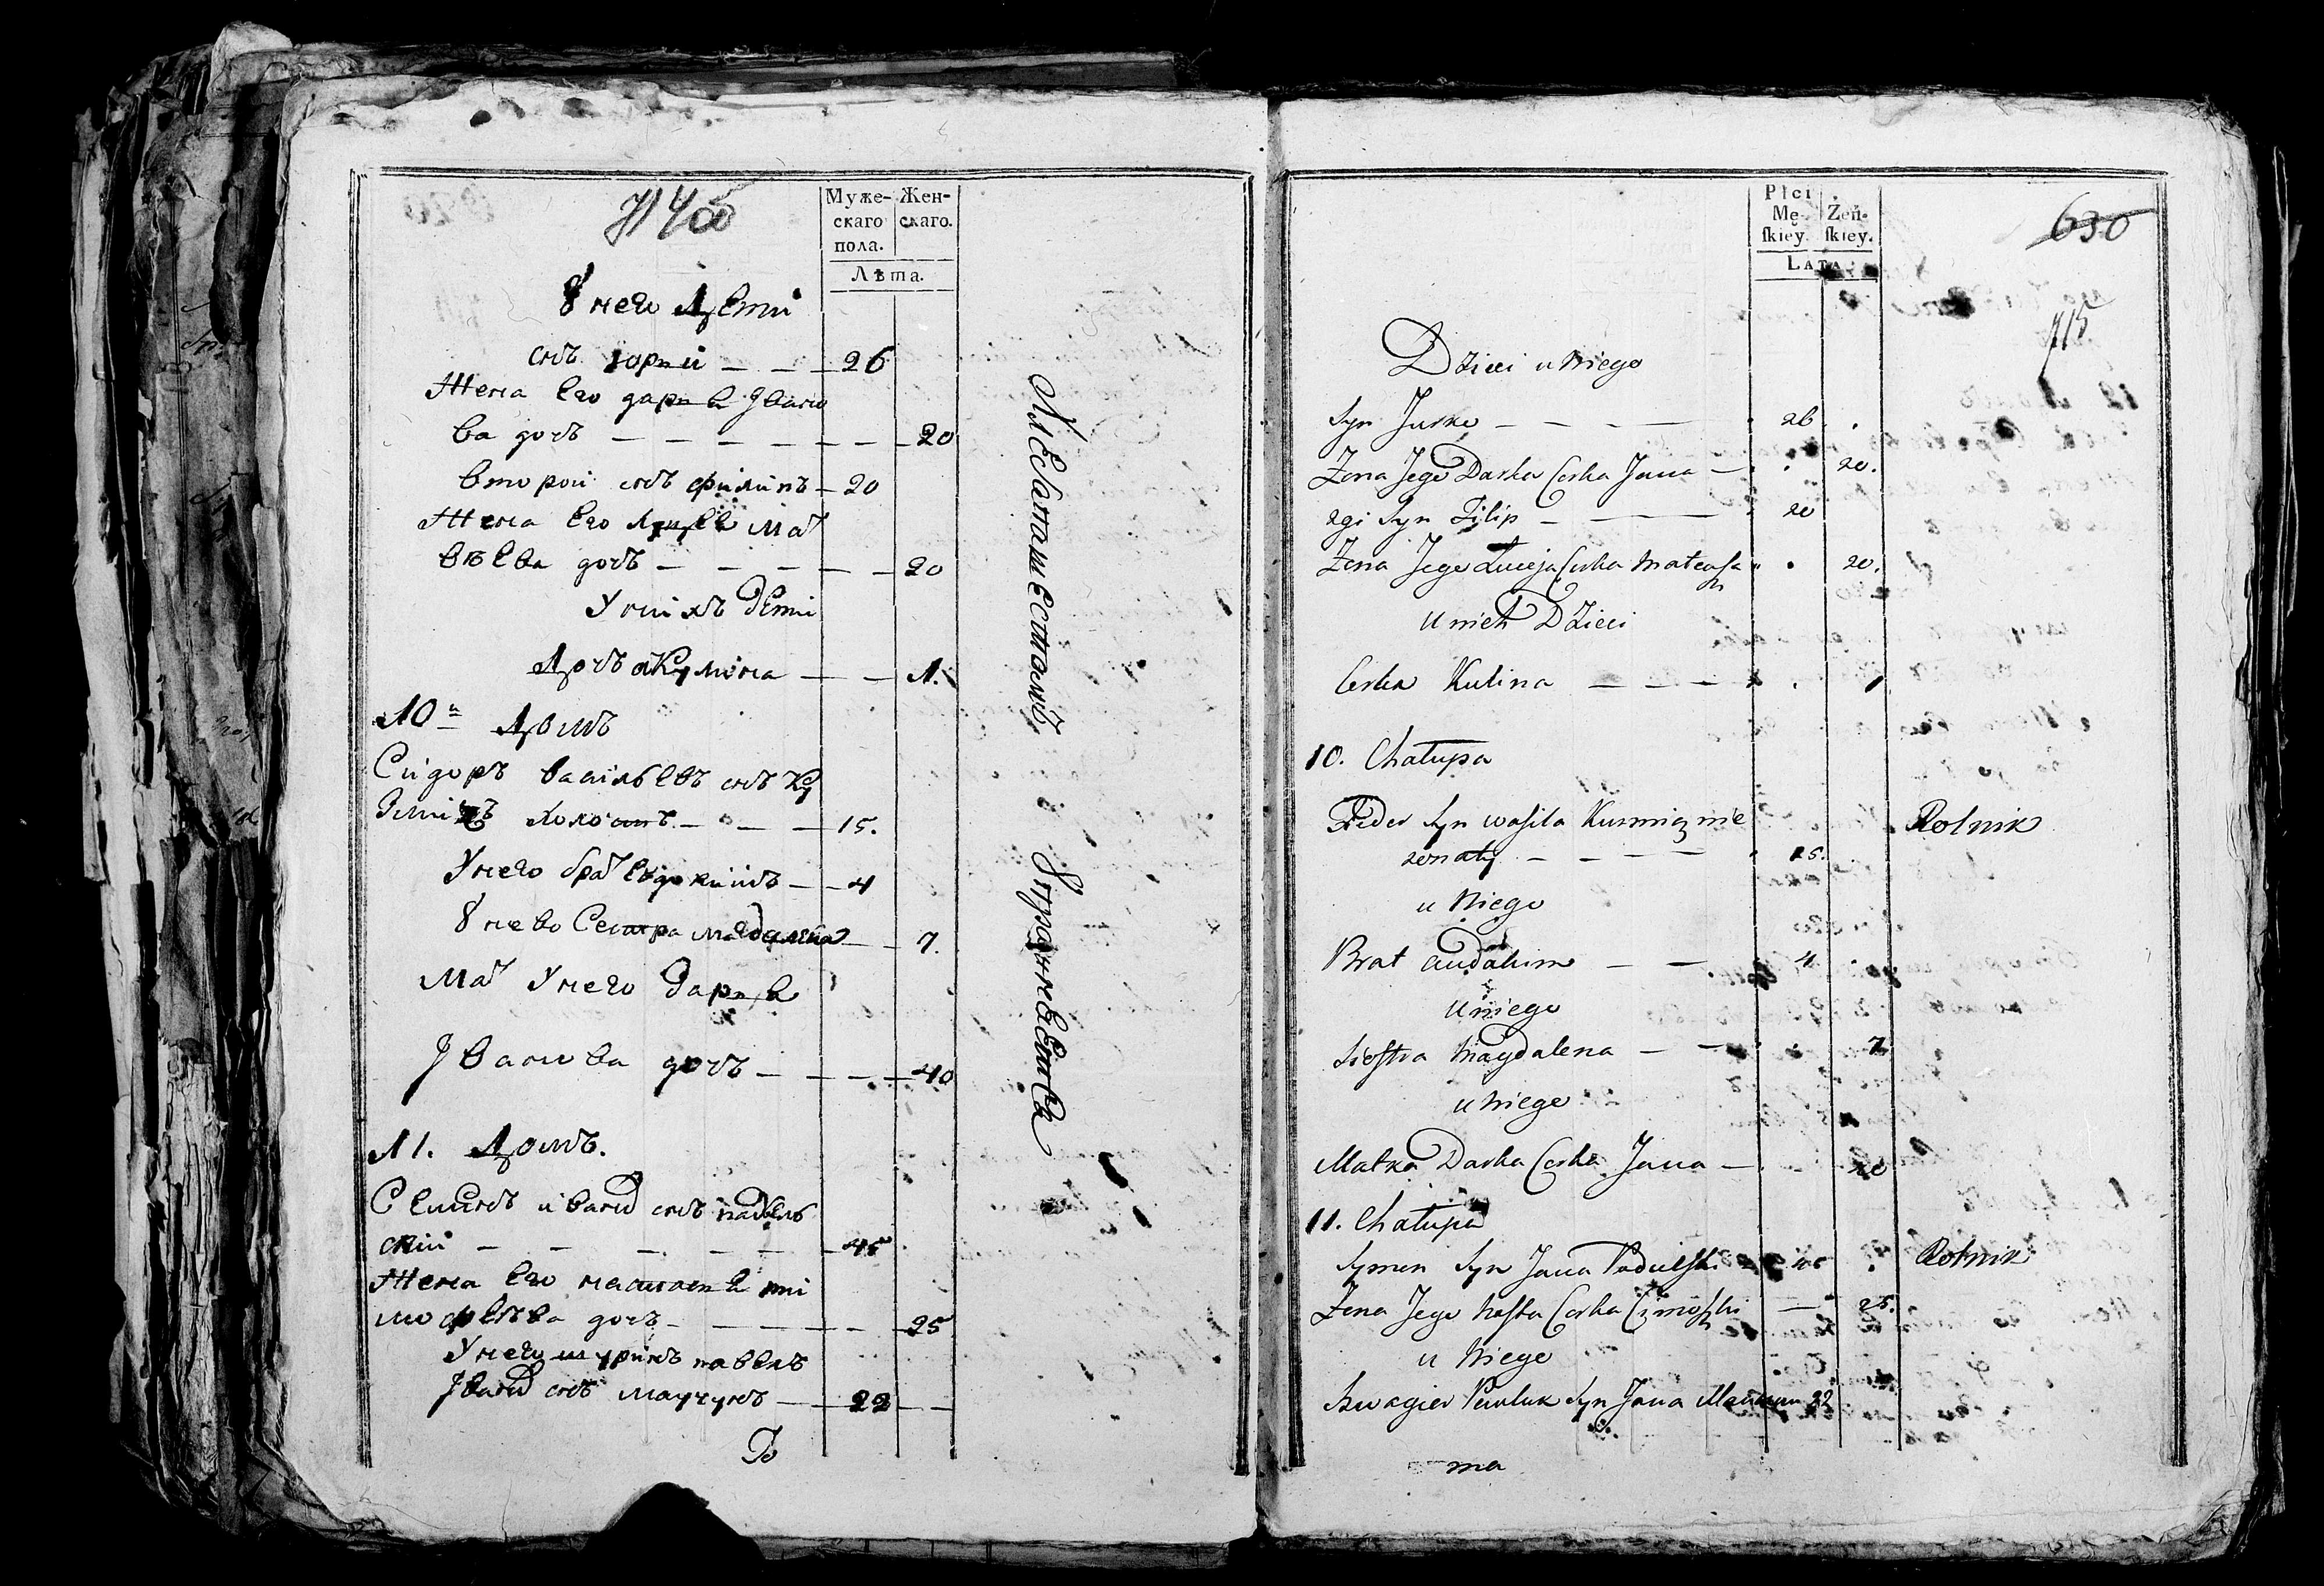 Муже-
скаго
пола.
Жен-
скаго.
Лѣта.
У него Дети
снъ юрки — — — 26
Жена Его дарья Івано
ва дочъ — — — — — — 20
второй снъ филипъ — 20
Жена Его Луцея Мат
вѣева дочъ — — — — — 20
У нихъ Дети
Дочъ акулина — — 1.
10й Домъ
Сидоръ васильевъ снъ Ку
змичъ холостъ — — — 15.
У него братъ евдокимъ — — 4
У нево Сестра магдалена — — 7.
Мать У него Дарья
Іванова дочъ — — — — 40
11. Домъ.
Семенъ иванов снъ падвель
ский — — — — — — 45
Жена Его настасея ти
мофеева дочъ — — — — — 25
У него шуринъ павелъ
Іванов снъ мачунъ — — 22 — —
По
Płci
Mę-
skiey.
Żeń-
skiey.
LATA
630
715
Dzieci u Niego
Syn Jurko — — — — 26 .
Zona Jego Darka Corka Jana — . 20.
2gi Syn Filip — — 20
Zona Jego Luceja Corka Mateusza . 20.
u nich Dzieci
Corka Kulina — — — . 1
10. Chałupa
Feder Syn wasila Kusmicz nie Rolnik
zonaty — — — — 15.
u Niego
Brat audakim — — 4 .
u niego
Siostra Magdalena — — . 7
u Niego
Matka Darka Corka Jana — . 40
11. Chałupa
Symen Syn Jana Padwelski 45 . Rolnik
Zona Jego Nasta Corka Cimoszki — 25.
u Niego
Szwagier Pawluk Syn Jana Maczun 22
ma